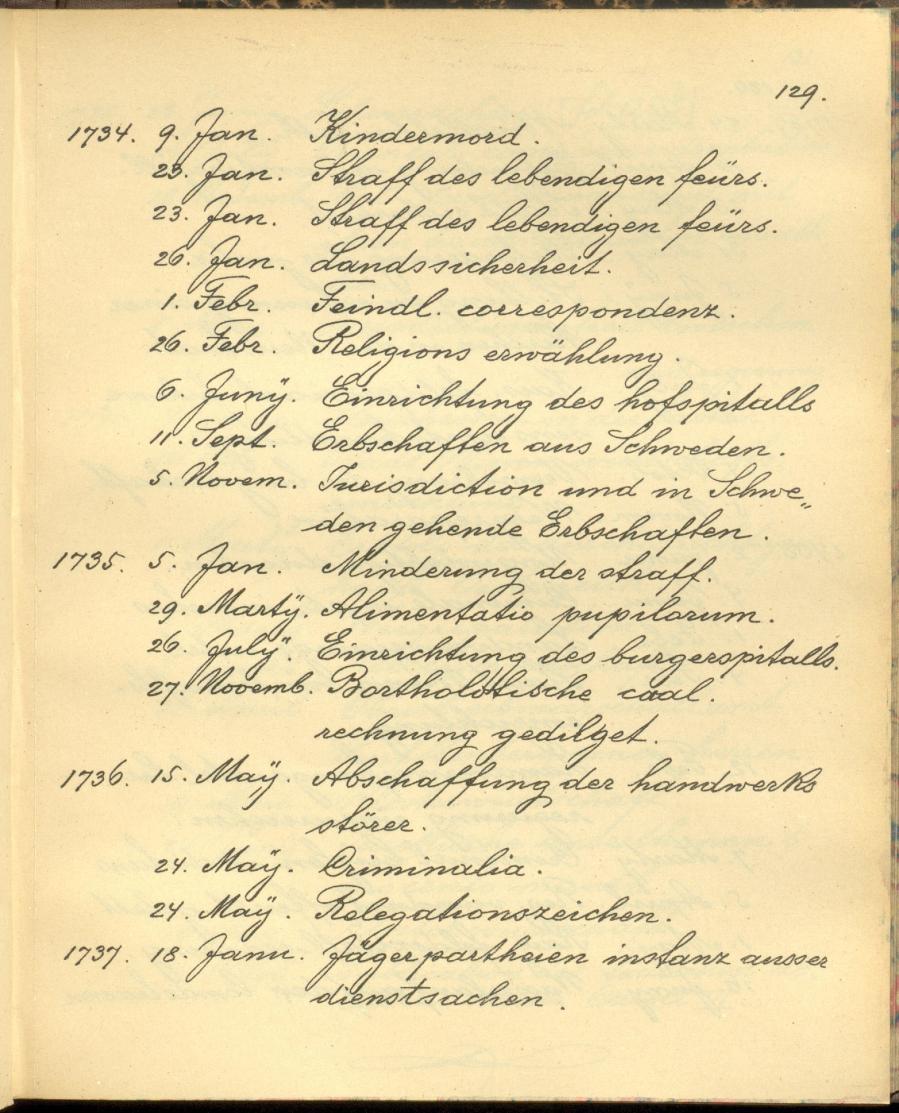 129.
1734. 9. Jan. Kindermord.
23. Jan. Straff des lebendigen feürs.
23. Jan. Straff des lebendigen feürs.
26. Jan. Landssicherheit.
1. Febr. Feindl. correspondenz.
26. Febr. Religions erwählung.
6. Junÿ. Einrichtung des hofspitalls
11. Sept. Erbschaften aus Schweden.
5. Novem. Jurisdiction und in Schwe„
den gehende Erbschaften.
1735. 5. Jan. Minderung der straff.
29. Martÿ. Alimentatio pupilorum.
26. Julÿ. Einrichtung des burgerspitalls.
27. Novemb. Bartholotische caal.
rechnung gedilget.
1736. 15. Maÿ. Abschaffung der handwerks
störer.
24. Maÿ. Criminalia.
24. Maÿ. Relegationszeichen.
1737. 18. Janu. Jäger partheien instanz ausser
dienstsachen.